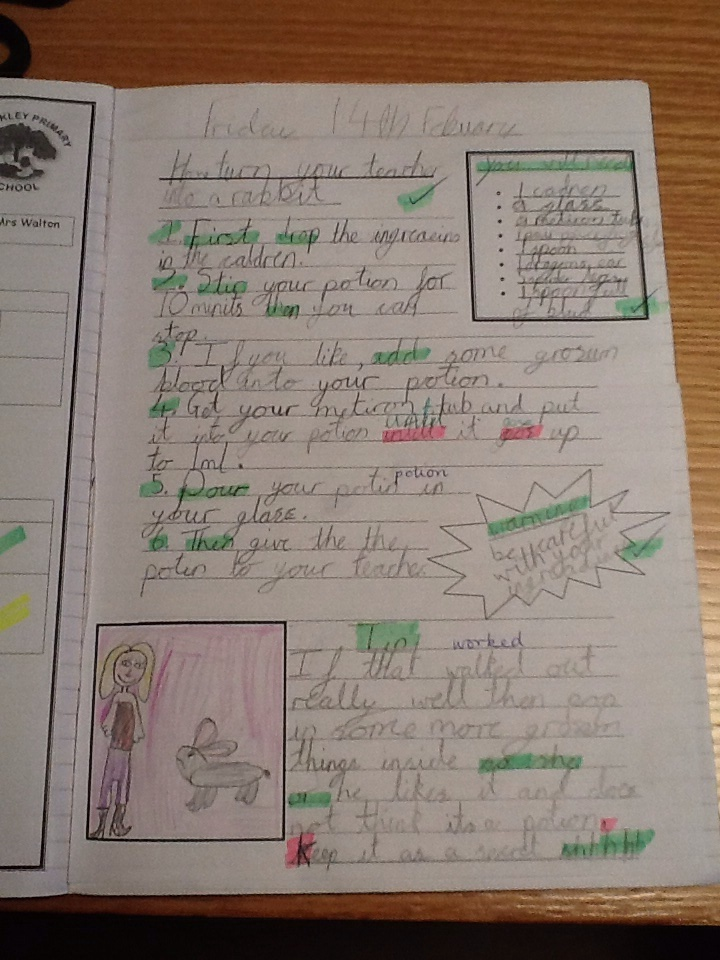 KLEY PRIMARY
CHOOL
Mrs Walton
Friday 14th Febuary
How turn your teacher
into a rabbit
you will need
• 1 cadren
• a glass
• a meticon tub
• 1 spoon
• 1 dragons ear
• 1 spoonfull
of blud
1. First drop the ingreaeins
in the caldren.
2. Stip your potion for
10 minits then you can
stop.
3. If you like, add some grosum
blood into your potion.
4. Get your meticon tub and put
until
it into your potion intill it gos up
to 1ml.
potion
5. Pour your potin in
your glass.
6. Then give the the
poten to your teacher
warning
be careful
with your
Tip
worked
If that walked out
really well then pop
in some more grosum
things inside so she
or he likes it and does
not think its a potion.
Keep it as a secret shhhhh